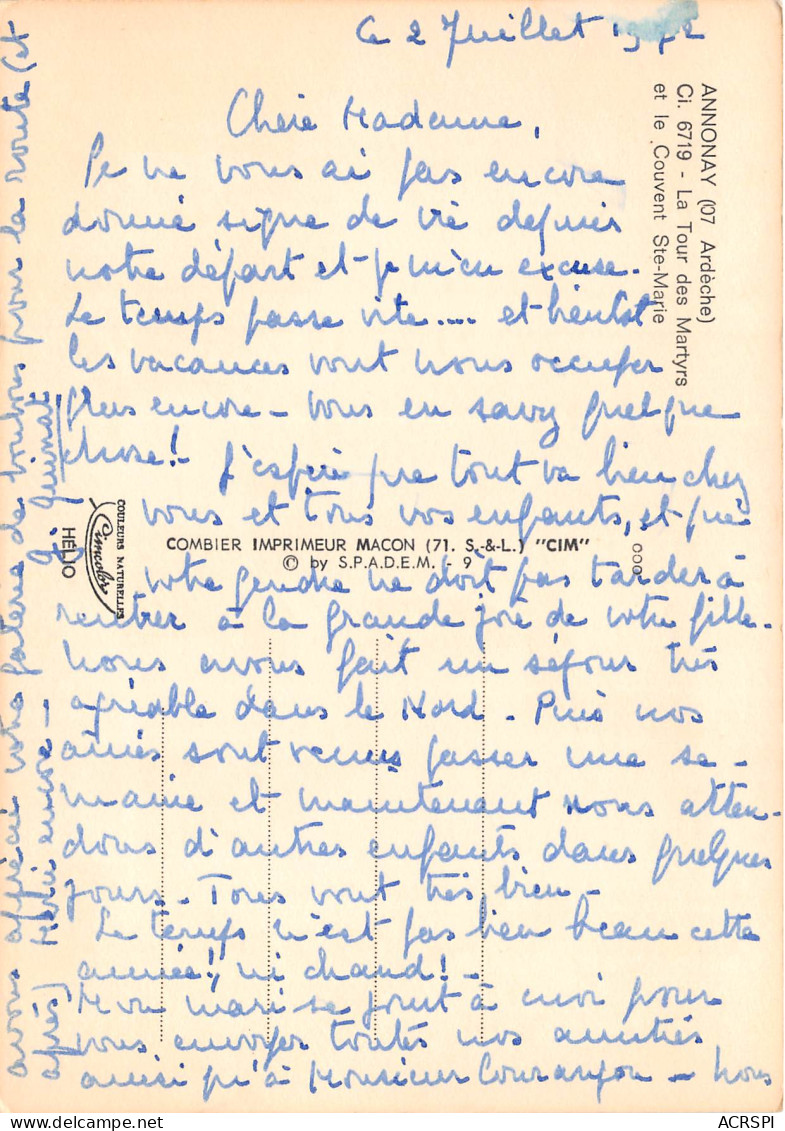 Ce 2 Juillet 1972
Chère Madame,
Je ne vous ai pas encore
donné signe de vie depuis
notre départ et je m'en excuse.
Le temps passe vite.... et bientôt
les vacances vont nous occuper
plus encore - Vous en savez quelque
chose! - J'espère que tout va bien chez
vous et tous vos enfants, et que
votre gendre ne doit pas tarder à
rentrer à la grande joie de votre fille.
Nous avons fait un séjour très
agréable dans le Nord. Puis nos
aînés sont venus passer une se-
maine et maintenant nous atten-
dons d'autres enfants dans quelques
jours. Tous vont très bien -
Le temps n'est pas bien beau cette
année!, ni chaud! -
Mon mari se joint à moi pour
vous envoyer toutes nos amitiés
ainsi qu'à Monsieur - Nous
avons apprécié votre gâterie de bonbons pour la route (et
après) Merci encore -
ANNONAY (07 Ardèche)
Ci. 6719 - La Tour des Martyrs
et le Couvent Ste-Marie
COULEURS NATURELLES
Cimcolor
HÉLIO
COMBIER IMPRIMEUR MACON (71. S.-&-L.) "CIM"
© by S.P.A.D.E.M. - 9
000
ACRSPI